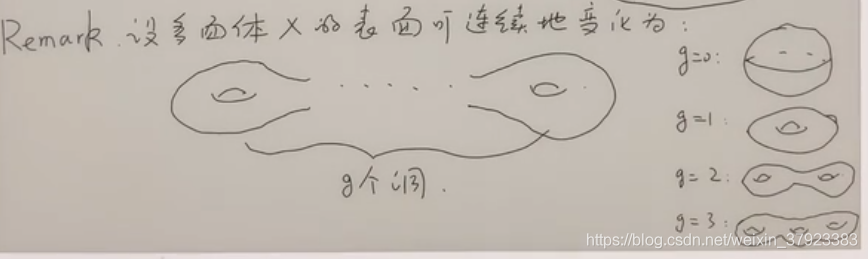 Remark. 设多面体 X 的表面可连续地变化为:
g=0:
g=1:
g=2:
g=3:
g个洞.
https://blog.csdn.net/weixin_37923383